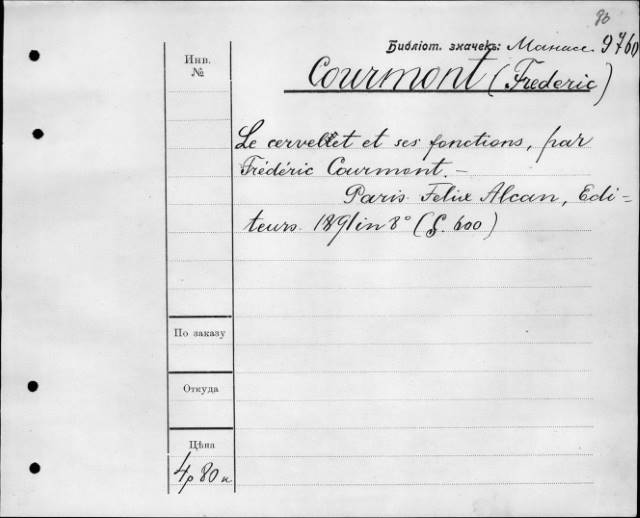 Библiот. значекъ: Манасс. 9760
Инв.
№
Courmont (Frederic)
Le cervelet et ses fonctions, par
Frédéric Courmont. —
Paris. Felix Alcan, Edi-
teurs. 1891 in 8° (S. 600)
По заказу
Откуда
Цѣна
4р 80 к